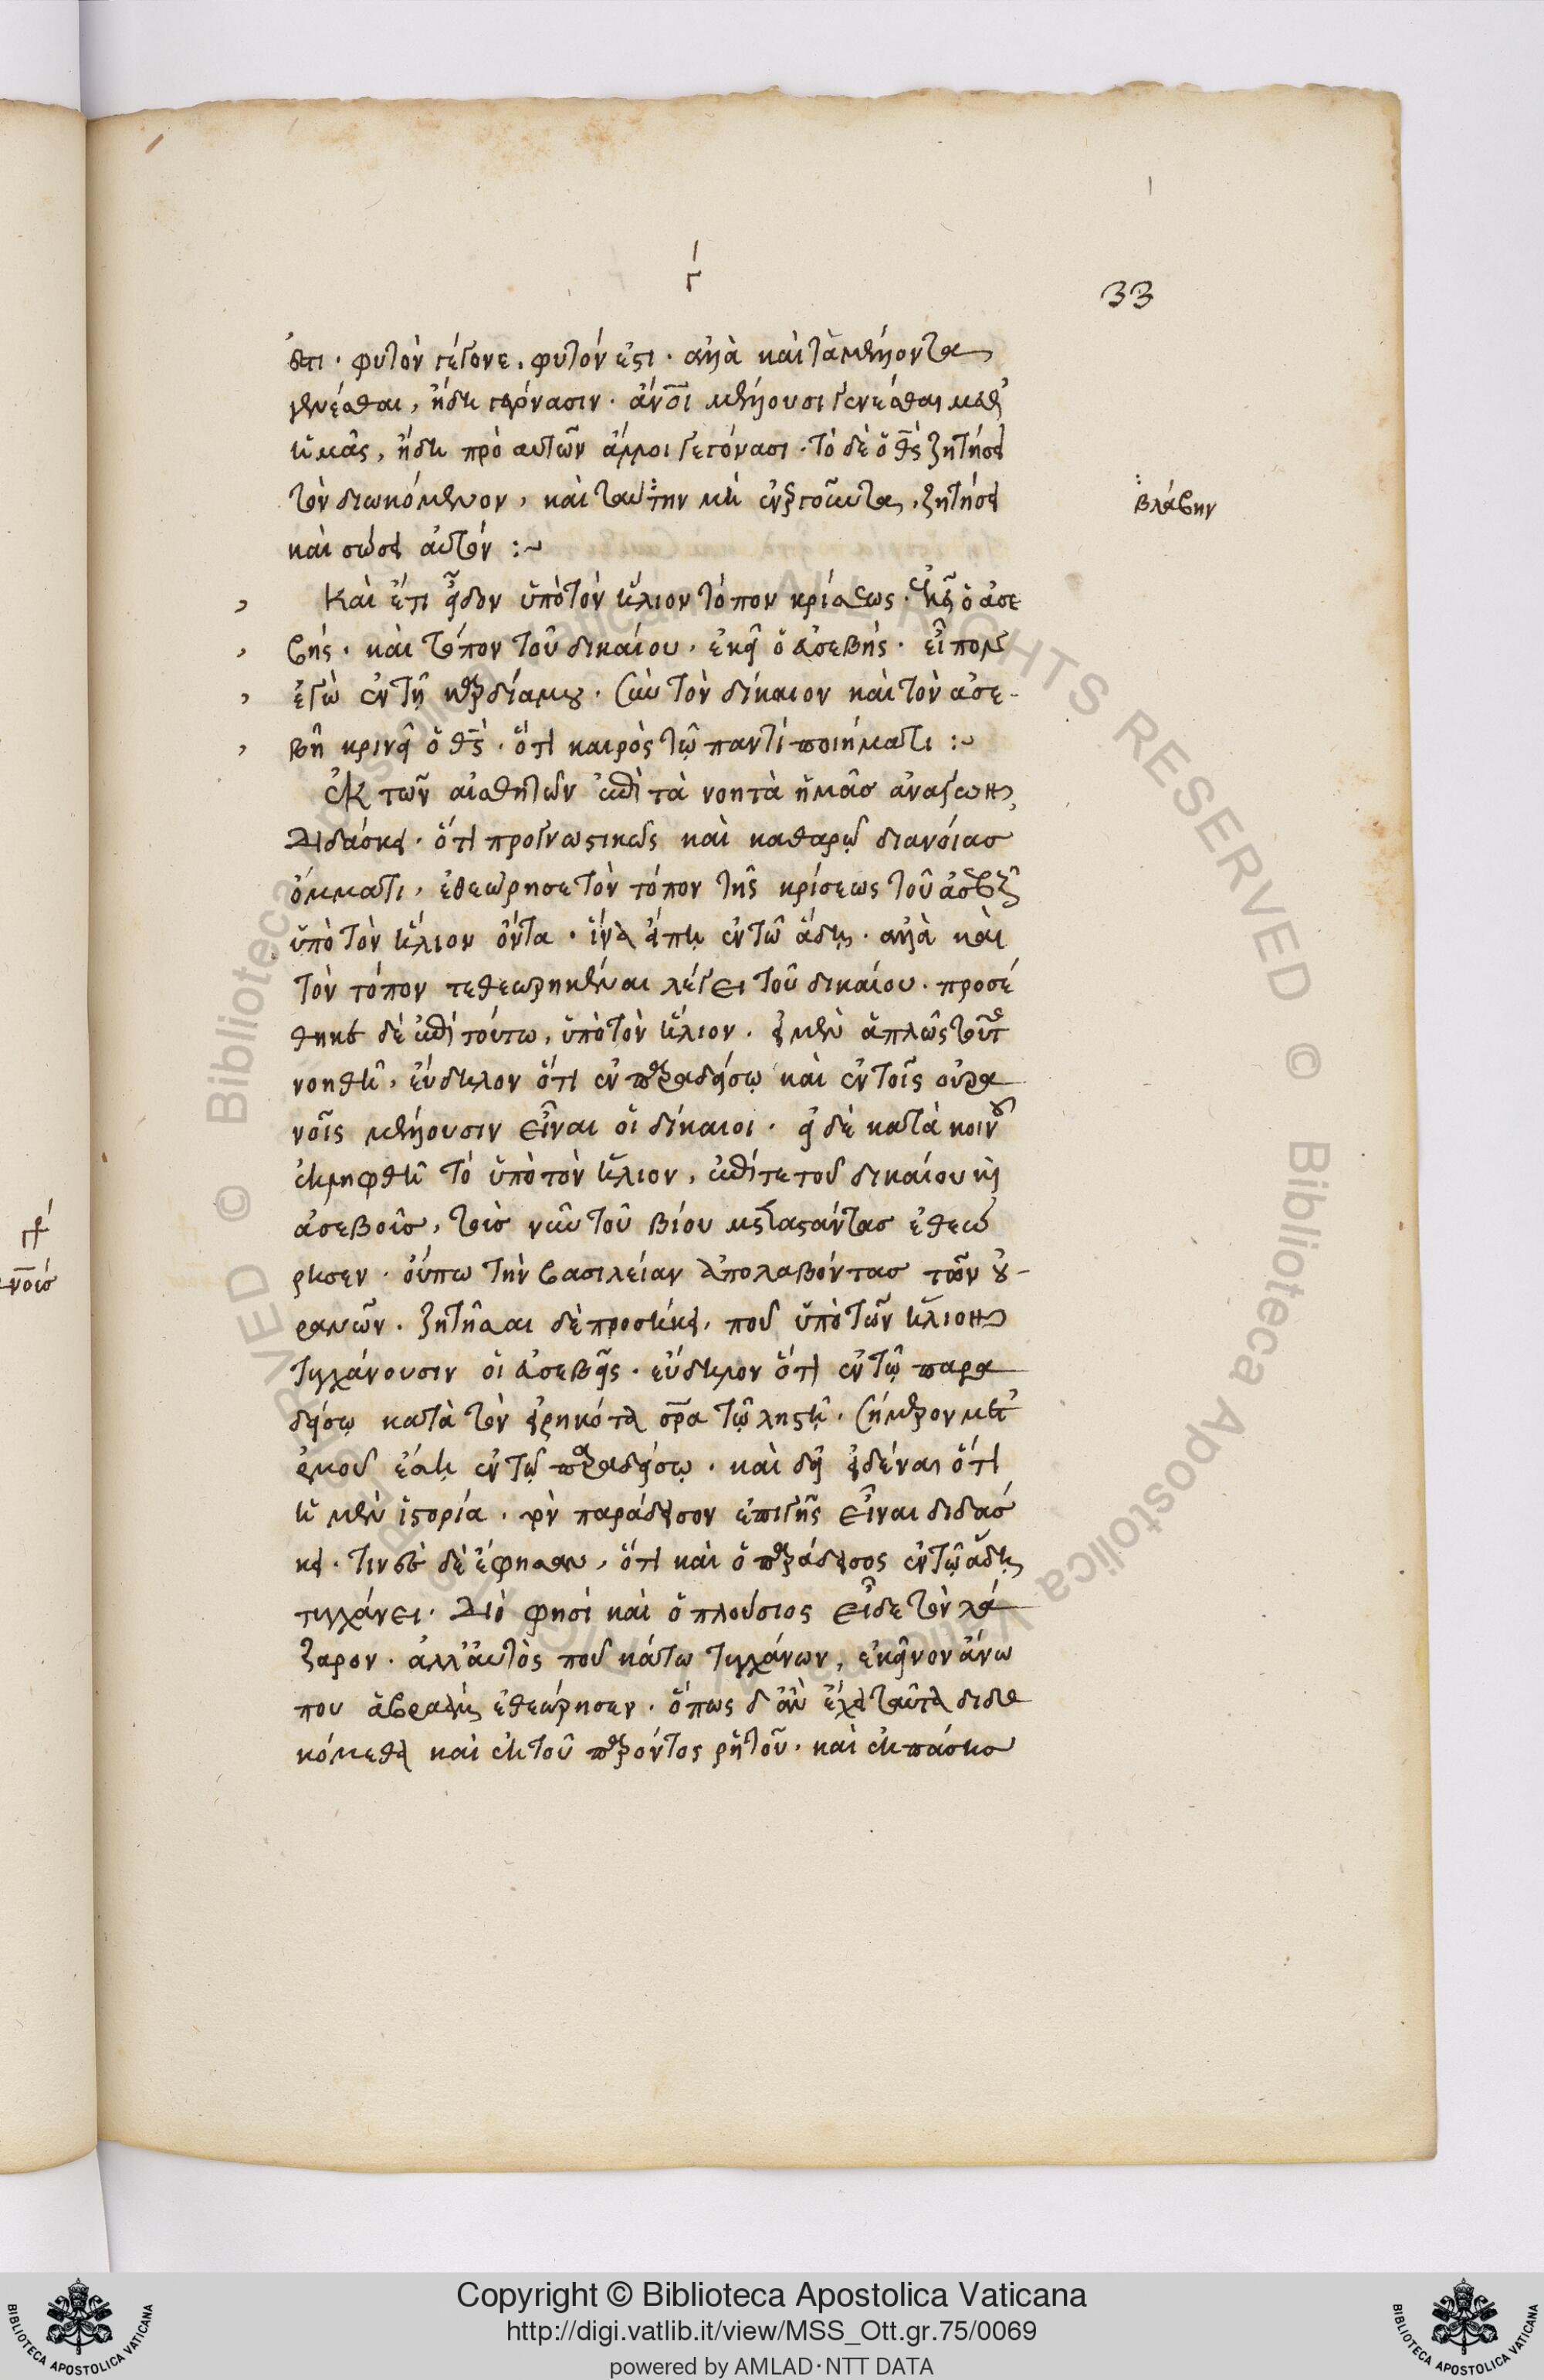 γ
33
ἔτι· φυτὸν γέγονε. φυτόν ἐστι· ἀλλὰ καὶ τὰ μέλλοντα
γενέσθαι, ἤδη γεγόνασιν· ἄνοι μέλλουσι γενέσθαι μεθ'
ἡμᾶς, ἤδη πρὸ αὐτῶν ἄλλοι γεγόνασι· τὸ δὲ ὁ θς ζητήσει
τὸν διωκόμενον, καὶ ταύτην μὴ εὑρτοῦντα, ζητήσει
βλάβην
καὶ σώσει αὐτόν :~
Καὶ ἔτι εἶδον ὑπὸ τὸν ἥλιον τόπον κρίσεως· ἐκεῖ ὁ ἀσε
βής· καὶ τόπον τοῦ δικαίου, ἐκεῖ ὁ ἀσεβής· εἶπον
ἐγὼ ἐν τῇ καρδίᾳ μου· σὺν τὸν δίκαιον καὶ τὸν ἀσε-
βῆ κρινεῖ ὁ θς· ὅτι καιρὸς τῷ παντὶ ποιήματι :~
ἐκ τῶν αἰσθητῶν ἐπὶ τὰ νοητὰ ἡμᾶς ἀνάγων
διδάσκει· ὅτι προγνωστικῶς καὶ καθαρῷ διανοίας
ὄμματι, ἐθεώρησε τὸν τόπον τῆς κρίσεως τοῦ ἀσεβοῦς
ὑπὸ τὸν ἥλιον ὄντα· ἵνα εἴπῃ ἐν τῷ ἅδῃ· ἀλλὰ καὶ
τὸν τόπον τεθεωρηκέναι λέγει τοῦ δικαίου· προσέ
θηκε δὲ ἐπὶ τούτω, ὑπὸ τὸν ἥλιον· εἰ μὲν ἁπλῶς τοῦτο
νοηθῇ, εὔδηλον ὅτι ἐν παραδείσῳ καὶ ἐν τοῖς οὐρα
νοῖς μέλλουσιν εἶναι οἱ δίκαιοι· εἰ δὲ κατὰ κοινοῦ
ἐκληφθῇ τὸ ὑπὸ τὸν ἥλιον, ἐπί τε τοῦ δικαίου καὶ
ἀσεβοῦς, τοὺς νῦν τοῦ βίου μεταστάντας ἐθεώ
ρησεν· οὔπω τὴν βασιλείαν ἀπολαβόντας τῶν οὐ-
ρανῶν· ζητῆσαι δὲ προσήκει, ποῦ ὑπὸ τῶν ἥλιον
τυγχάνουσιν οἱ ἀσεβεῖς· εὔδηλον ὅτι ἐν τῷ παρα
δείσῳ κατὰ τὸν εἰρηκότα σρα τῷ λῃστῇ· σήμερον μετ'
ἐμοῦ ἔσῃ ἐν τῷ παραδείσῳ· καὶ δεῖ εἰδέναι ὅτι
ἡ μὲν ἱστορία, τὸν παράδεισον ἐπὶ γῆς εἶναι διδάσ
κει· τινὲς δὲ ἔφησαν, ὅτι καὶ ὁ παράδεισος ἐν τῷ ἅδῃ
τυγχάνει· Διό φησι καὶ ὁ πλούσιος εἶδε τὸν λά
ζαρον· ἀλλ' αὐτὸς ποῦ κάτω τυγχάνων, ἐκεῖνον ἄνω
που ἀβραὰμ ἐθεώρησεν· ὅπως δ' ἂν ἔχῃ ταῦτα διδα
κόμεθα καὶ ἐκ τοῦ παρόντος ῥητοῦ· καὶ ἐκ πάσης
γρ
νοις
Copyright © Biblioteca Apostolica Vaticana
http://digi.vatlib.it/view/MSS_Ott.gr.75/0069
powered by AMLAD·NTT DATA
BIBLIOTECA APOSTOLICA VATICANA
BIBLIOTECA APOSTOLICA VATICANA